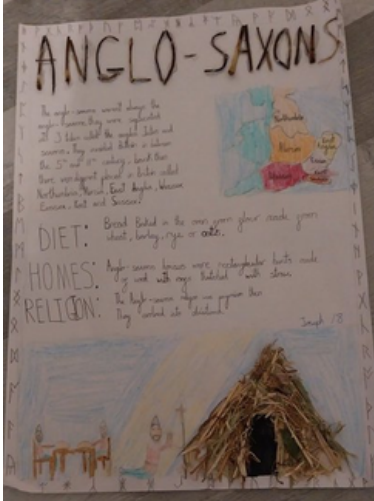 ANGLO-SAXONS
The anglo-saxons weren't always the
anglo-saxons, they were
of 3 tribes called the angles Jutes and
saxons, they invaded Britain in between
the 5th and 11th century, back then
there were different places in Britain called
Northumbria, Mercia, East Anglia, Wessex
Essex, Kent and Sussex.
Northumbria
Mercia
East Anglia
Essex
Wessex
DIET: Bread Baked in the oven from flour made from
wheat, barley, rye or oats.
HOMES: Anglo-saxon houses were rectangular huts made
of wood with roofs thatched with straw.
RELIGION: The Anglo-saxon religion was paganism then
They
Joseph